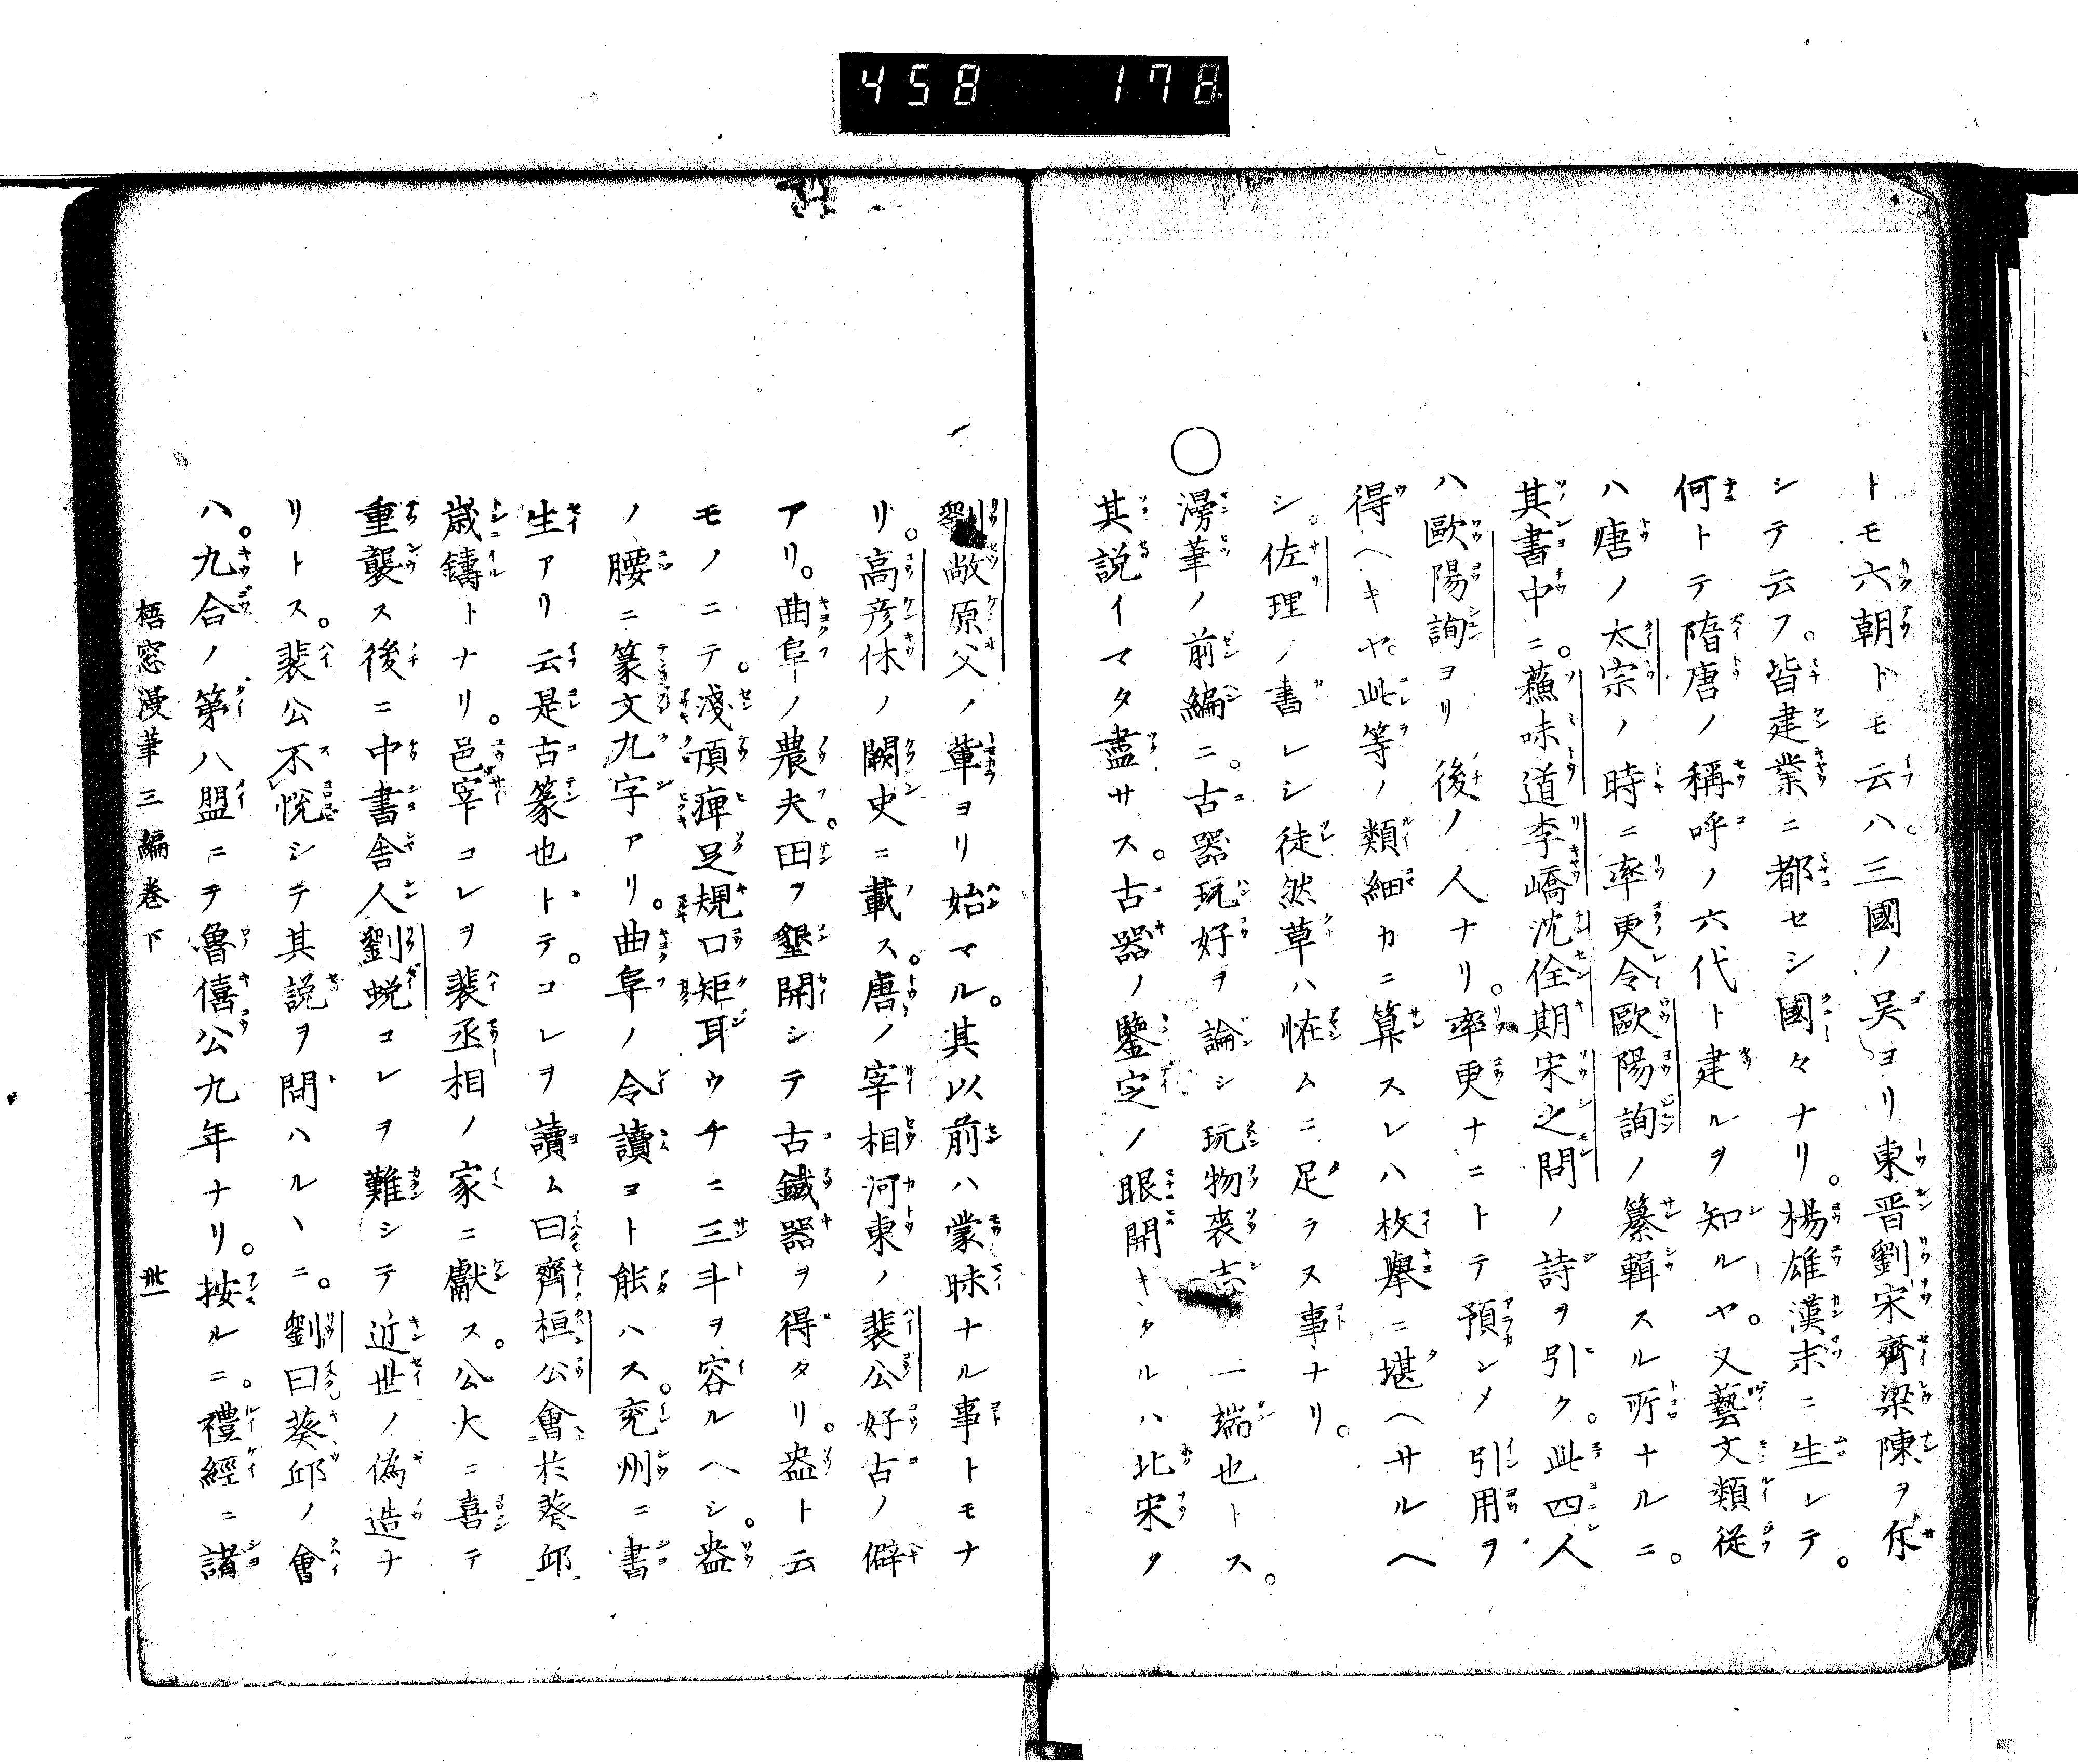 458 178
トモ六朝トモ云ハ。三國ノ吴ヨリ東晋劉宋齊梁陳ヲ尓
シテ云フ。皆建業ニ都セシ國々ナリ。楊雄漢末ニ生レテ。
何トテ隋唐ノ稱呼ノ六代ト建ルヲ知ルヤ。又藝文類従
ハ唐ノ太宗ノ時ニ率更令歐陽詢ノ纂輯スル所ナルニ。
其書中ニ。蘓味道李嶠沈佺期宋之問ノ詩ヲ引ク。此四人
ハ歐陽詢ヨリ後ノ人ナリ。率更ナニトテ預シメ引用ヲ
得ヘキヤ。此等ノ類細カニ算スレハ枚擧ニ堪ヘサルヘ
シ。佐理ノ書レシ徒然草ハ恠ムニ足ラヌ事ナリ。
○漫筆ノ前編ニ。古器玩好ヲ論シ玩物喪志ノ一端也トス。
其説イマタ盡サス。古器ノ鑒定ノ眼開キタルハ北宋ノ
劉敞原父ノ軰ヨリ始マル。其以前ハ蒙昧ナル事トモナ
リ。高彦休ノ闕史ニ載ス。唐ノ宰相河東ノ裴公好古ノ僻
アリ。曲阜ノ農夫。田ヲ墾開シテ古鐵器ヲ得タリ。盎ト云
モノニテ。淺項痺足規口矩耳ウチニ三斗ヲ容ルヘシ。盎
ノ腰ニ篆文九字アリ。曲阜ノ令讀ヨト能ハス。兖州ニ書
生アリ云是古篆也トテ。コレヲ讀ム曰齊桓公會於葵邱
歳鑄トナリ。邑宰コレヲ裴丞相ノ家ニ獻ス。公大ニ喜テ
重襲ス後ニ中書舎人劉蛻コレヲ難シテ近世ノ偽造ナ
リトス。裴公不悦シテ其説ヲ問ハルヽニ。劉曰葵邱ノ會
ハ。九合ノ第八盟ニテ魯僖公九年ナリ。按ルニ。禮經ニ諸
梧窓漫筆三編巻下 卅一